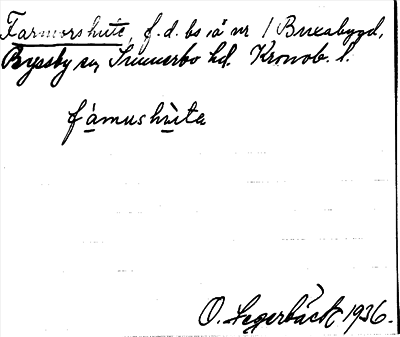 Farmorshute, f.d. bs å nr 1 Buxabygd,
Ryssby sn, Sunnerbo hd. Kronob. l.
fàmushùta
O. Segerbäck 1936.